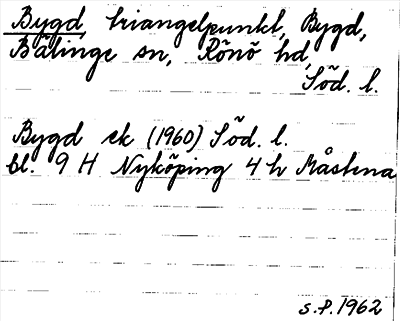 Bygd, triangelpunkt, Bygd,
Bälinge sn, Rönö hd,
Söd. l.
Bygd ek (1960) Söd. l.
bl. 9 H Nyköping 4 h Måstena
s.f. 1962